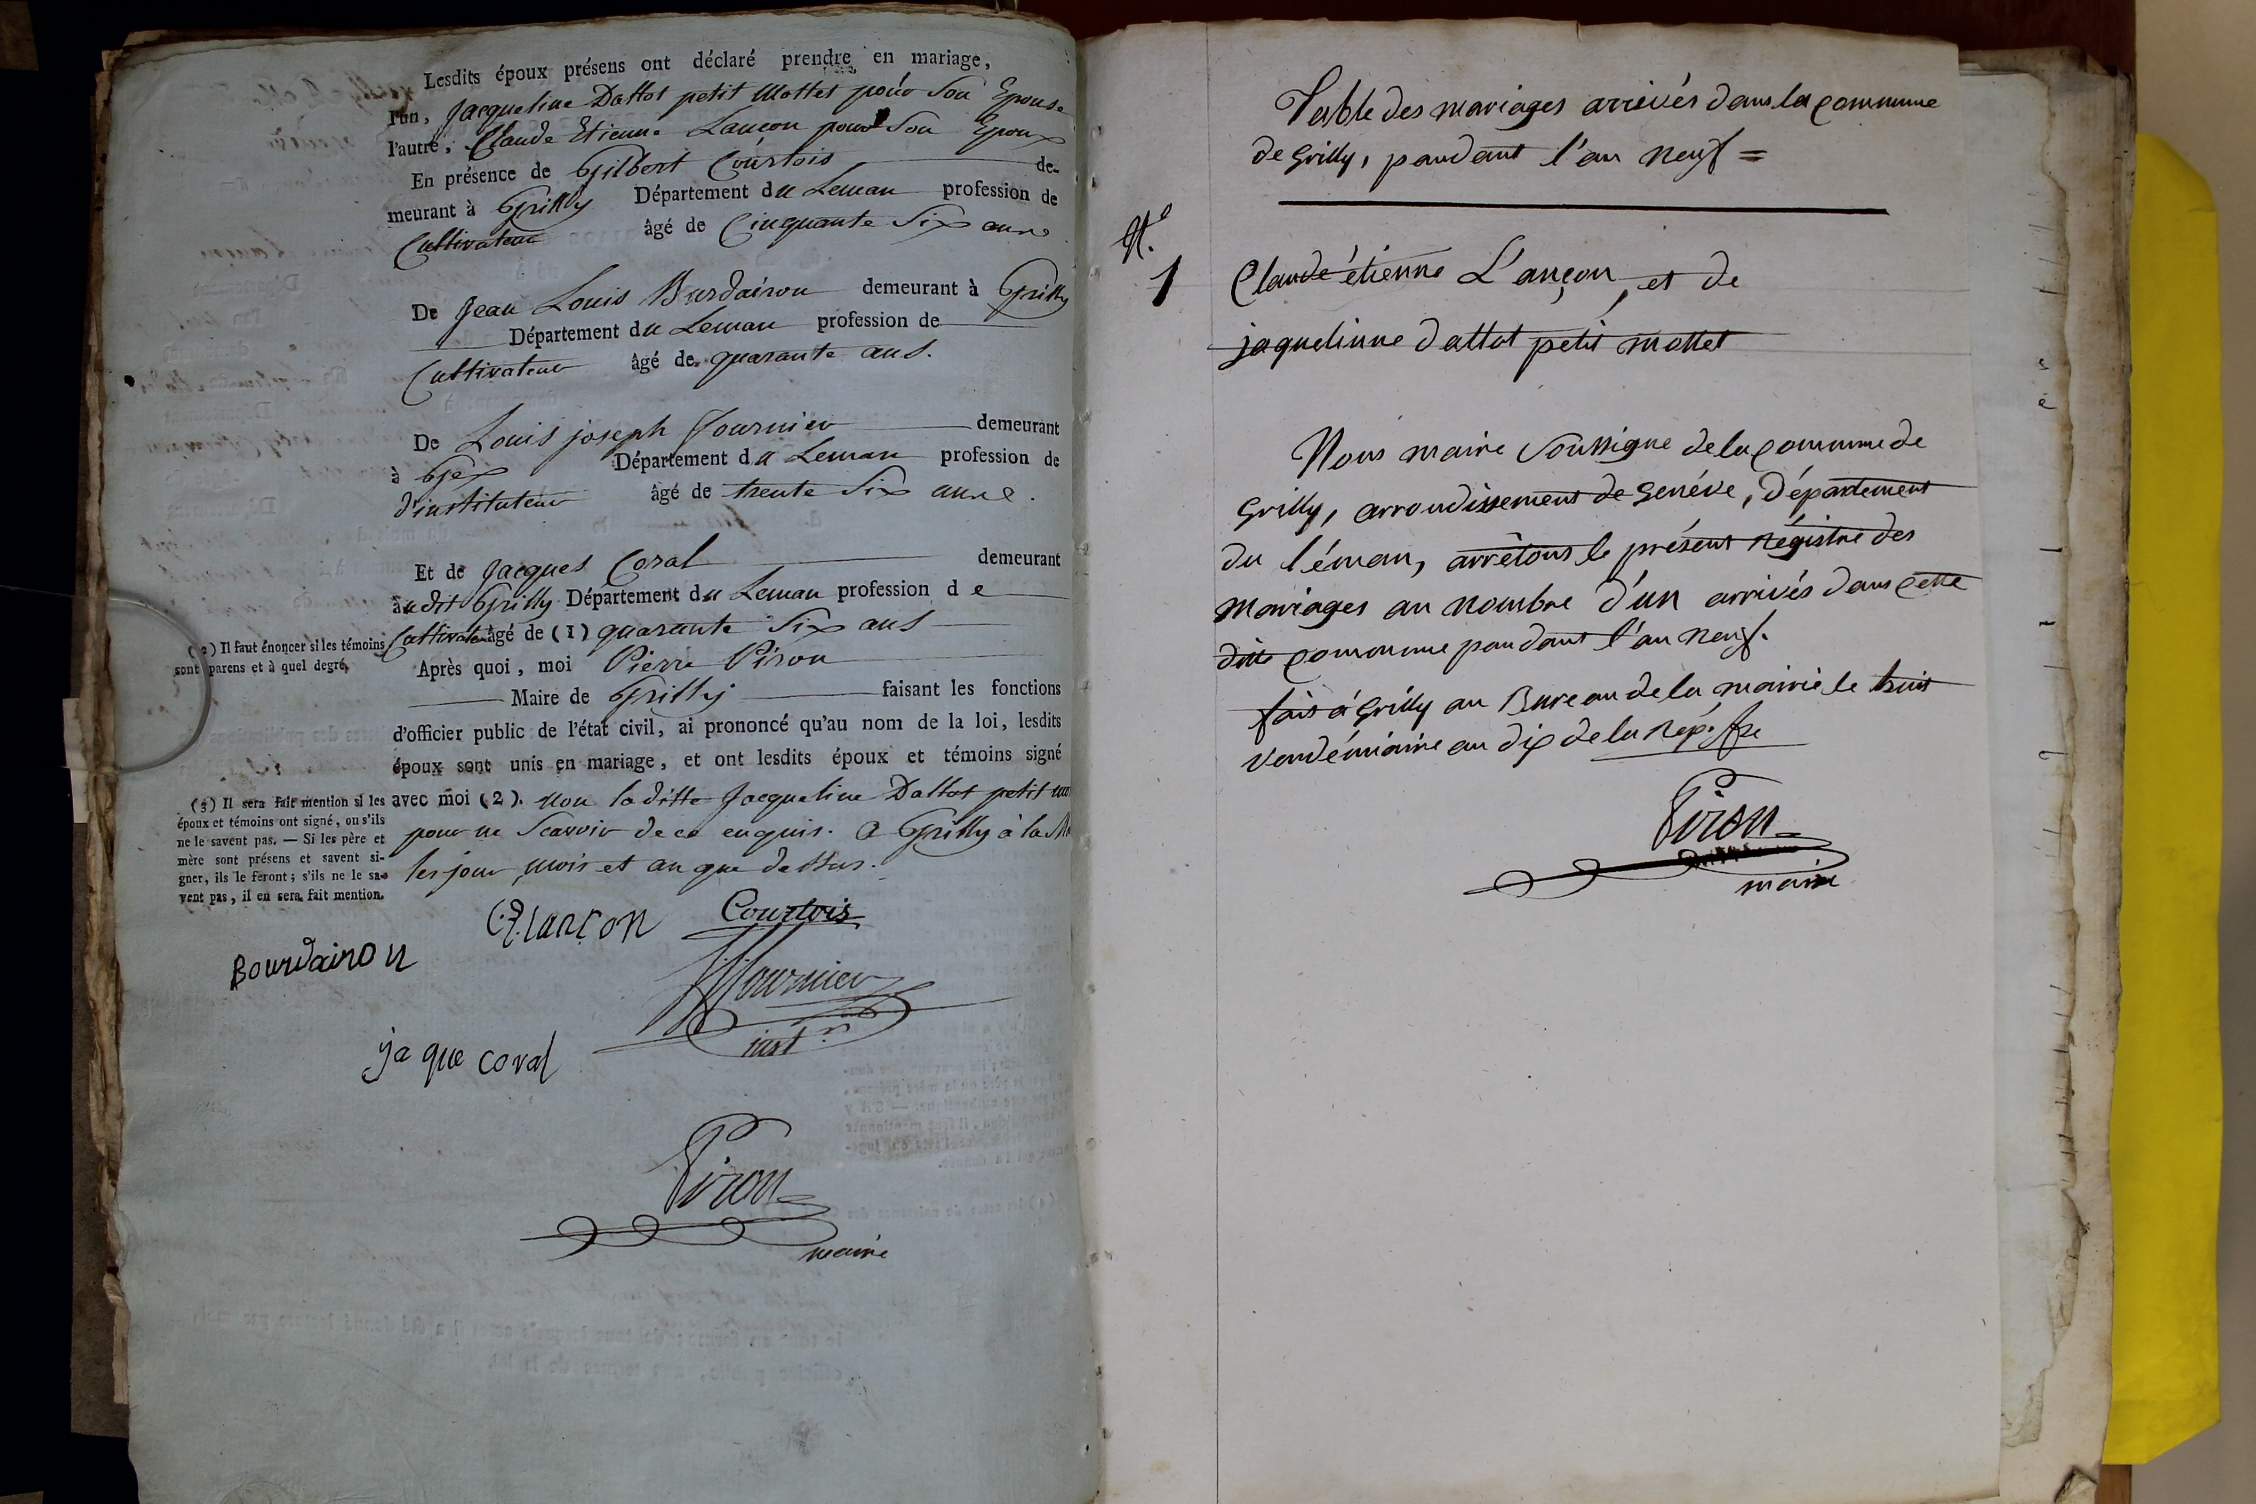 Lesdits époux présens ont déclaré prendre en mariage,
l'un, Jacqueline Dattot petit Mottet pour Son Epouse
l'autre, Claude Etienne Lançon pour Son Epoux
En présence de Gilbert Courtois de-
meurant à Grilly Département du Leman profession de
Cultivateur âgé de Cinquante Six ans
De Jean Louis Burdairon demeurant à Grilly
Département du Leman profession de
Cultivateur âgé de quarante ans.
De Louis joseph fournier demeurant
à Gex Département du Leman profession de
d'instituteur âgé de trente Six anne.
Et de Jacques Coral demeurant
audit Grilly Département du Leman profession de
Cultivateur âgé de (1) quarante Six ans
Après quoi, moi Pierre Piron
Maire de Grilly faisant les fonctions
d'officier public de l'état civil, ai prononcé qu'au nom de la loi, lesdits
époux sont unis en mariage, et ont lesdits époux et témoins signé
avec moi (2). non laditte Jacqueline Dattot petit
pour ne Scavoir de ce enquis. a Grilly à la
les jour, mois et an que dessus.
(2) Il faut énoncer si les témoins
sont parens et à quel degré.
(3) Il sera fait mention si les
époux et témoins ont signé, ou s'ils
ne le savent pas. — Si les père et
mère sont présens et savent si-
gner, ils le feront ; s'ils ne le sa-
vent pas, il en sera fait mention.
lançon Courtois
Bourdairon
fournier
instr
jaque coral
Piron
maire
Table des mariages arrivés dans la commune
de Grilly, pandant l'an neuf =
N.o
1 Claude étienne L'ançon, et de
jaquelinne dattot petit mottet
Nous maire Soussigne de la commune de
Grilly, arrondissement de Genéve, Département
du léman, arrêtons le présent régistre des
mariages au nombre d'un arrivés dans cette
ditte commune pandant l'an neuf.
fait à Grilly au Bureau de la mairie le huit
vendémiaire an dix de la rép. fse
Piron
maire